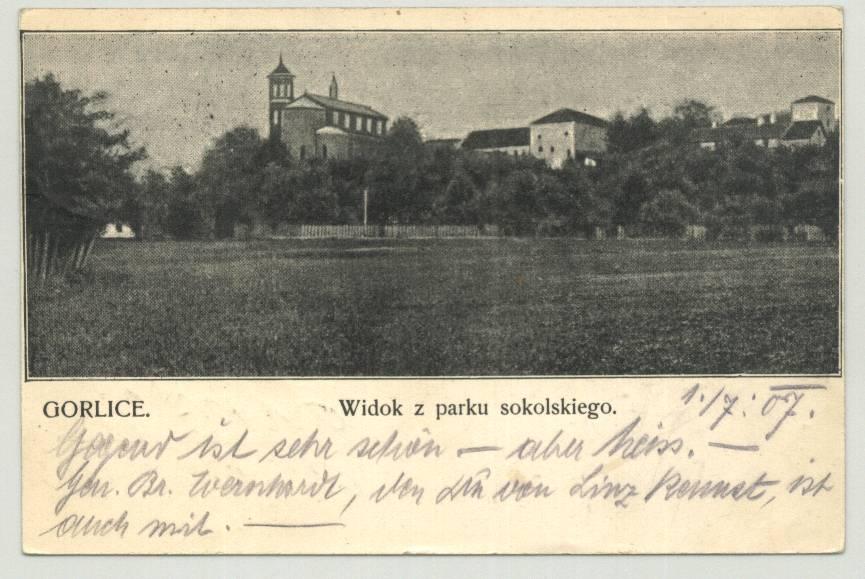 GORLICE.
Widok z parku sokolskiego.
1./7. 07.
Gegend ist sehr schön — aber heiss. —
Gen. Br. Wernhardt, den Du von Linz kennst, ist
auch mit. —